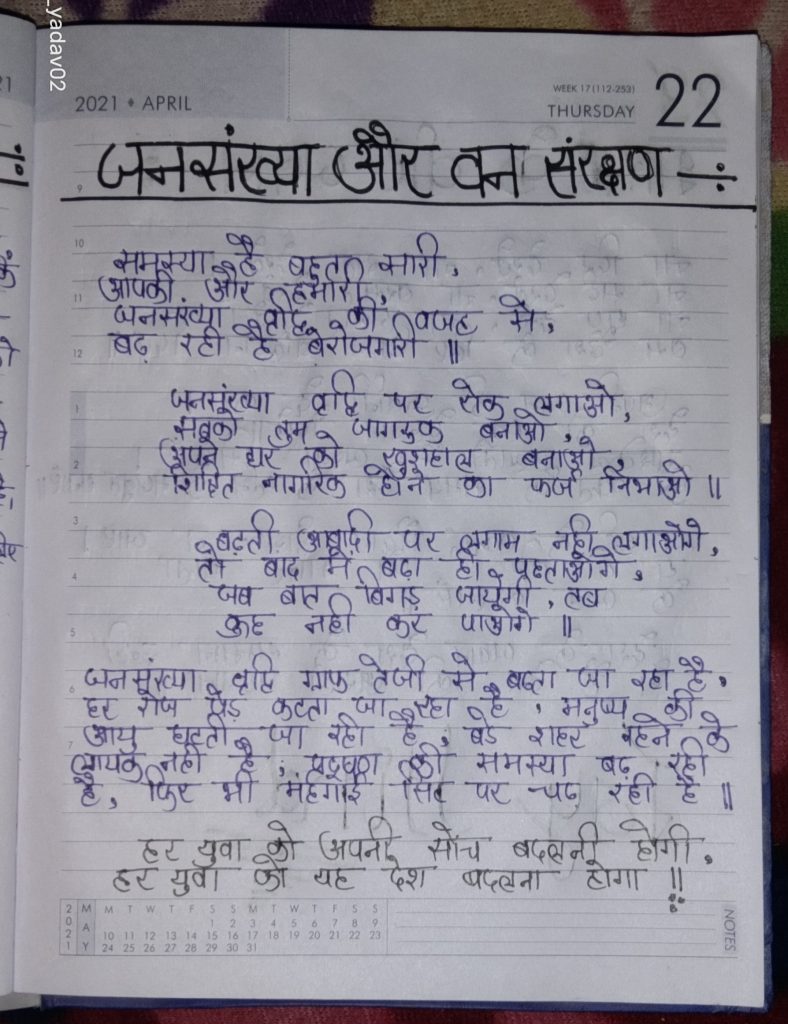 _yadav02
2021 • APRIL
WEEK 17 (112-253)
THURSDAY
22
जनसंख्या और वन संरक्षण -÷
समस्या है बहुत सारी,
आपकी और हमारी,
जनसंख्या वृद्धि की वजह से,
बढ़ रही है बेरोजगारी ॥
जनसंख्या वृद्धि पर रोक लगाओ,
सबको तुम जागरूक बनाओ,
अपने घर को खुशहाल बनाओ,
शिक्षित नागरिक होने का फर्ज निभाओ ॥
बढ़ती आबादी पर लगाम नहीं लगाओगे,
तो बाद में बड़ा ही पछताओगे,
जब बात बिगड़ जायेगी, तब
कुछ नहीं कर पाओगे ॥
जनसंख्या वृद्धि ग्राफ तेजी से बढ़ता जा रहा है,
हर रोज पेड़ कटता जा रहा है, मनुष्य की
आयु घटती जा रही है, बड़े शहर रहने के
लायक नहीं है, प्रदूषण की समस्या बढ़ रही
है, फिर भी मंहगाई सिर पर चढ़ रही है ॥
हर युवा को अपनी सोच बदलनी होगी,
हर युवा को यह देश बदलना होगा !!
2021 MAY
M T W T F S S M T W T F S S
1 2 3 4 5 6 7 8 9
10 11 12 13 14 15 16 17 18 19 20 21 22 23
24 25 26 27 28 29 30 31
NOTES